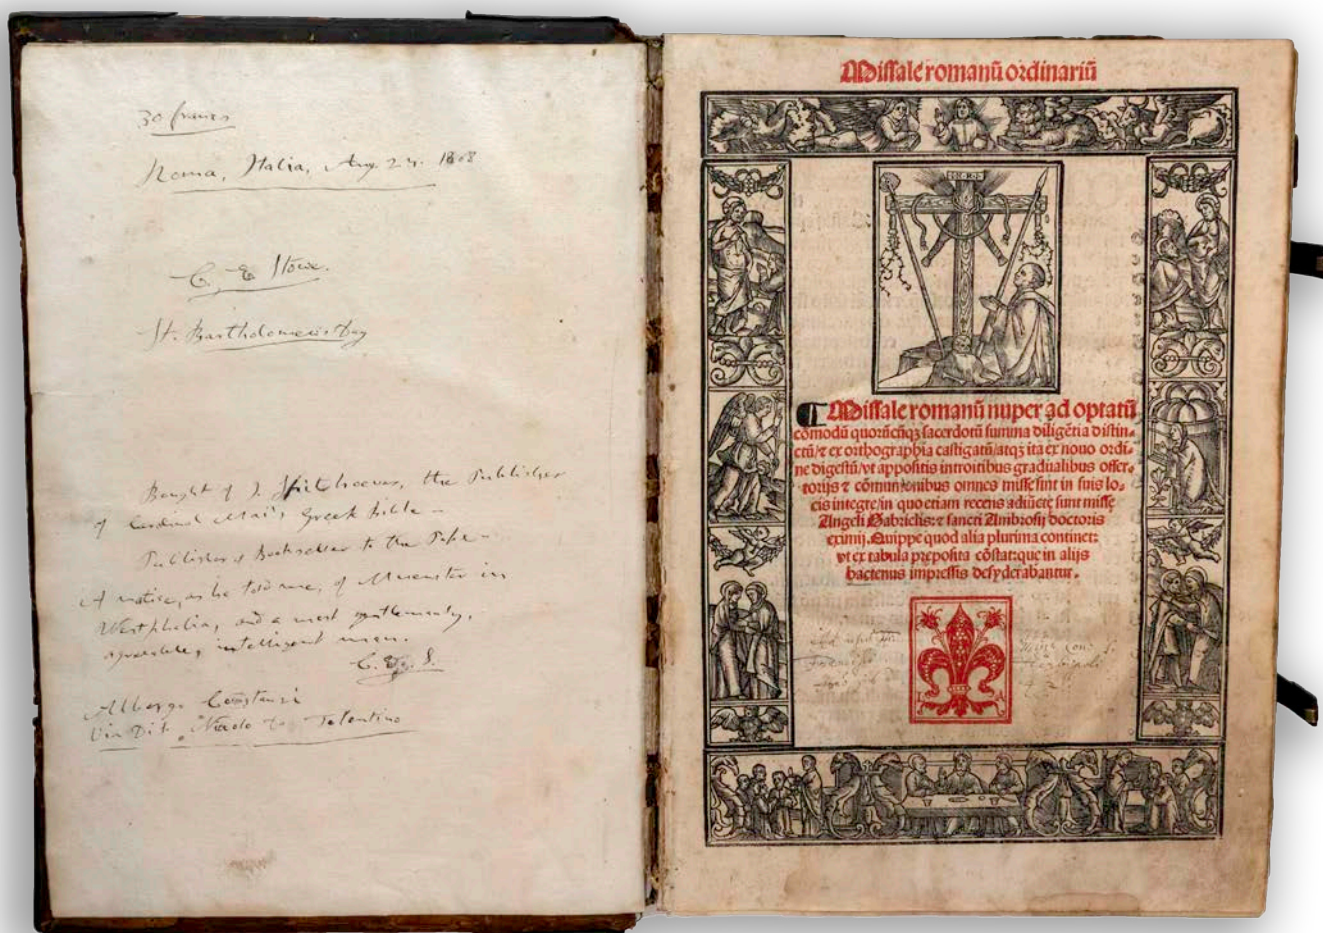 30 francs
Roma, Italia, Aug. 24. 1868
C. E. Stowe.
St. Bartholomew's Day
Bought of J. Spithoever, the Publisher
of Cardinal Mai's Greek Bible –
Publisher & Bookseller to the Pope –
A native, as he told me, of Muenster in
Westphalia, and a most gentlemanly,
agreeable, intelligent man.
C. E. S.
Albergo Costanzi
Via Di S. Nicolo Da Tolentino
Missale romanū ordinariū
I N R I
¶ Missale romanū nuper ad optatū
cōmodū quorūcūqꝫ sacerdotū summa diligētia distin-
ctū/⁊ ex orthographia castigatū/atqꝫ ita ex nouo ordi-
ne digestū/vt appositis introitibus gradualibus offer-
torijs ⁊ cōmunionibus omnes misse sint in suis lo-
cis integre/in quo etiam recens adiūcte sunt misse
Angeli Gabrielis: ⁊ sancti Ambrosij doctoris
eximij. Quippe quod alia plurima continet:
vt ex tabula preposita cōstat: que in alijs
hactenus impressis desyderabantur.
L A